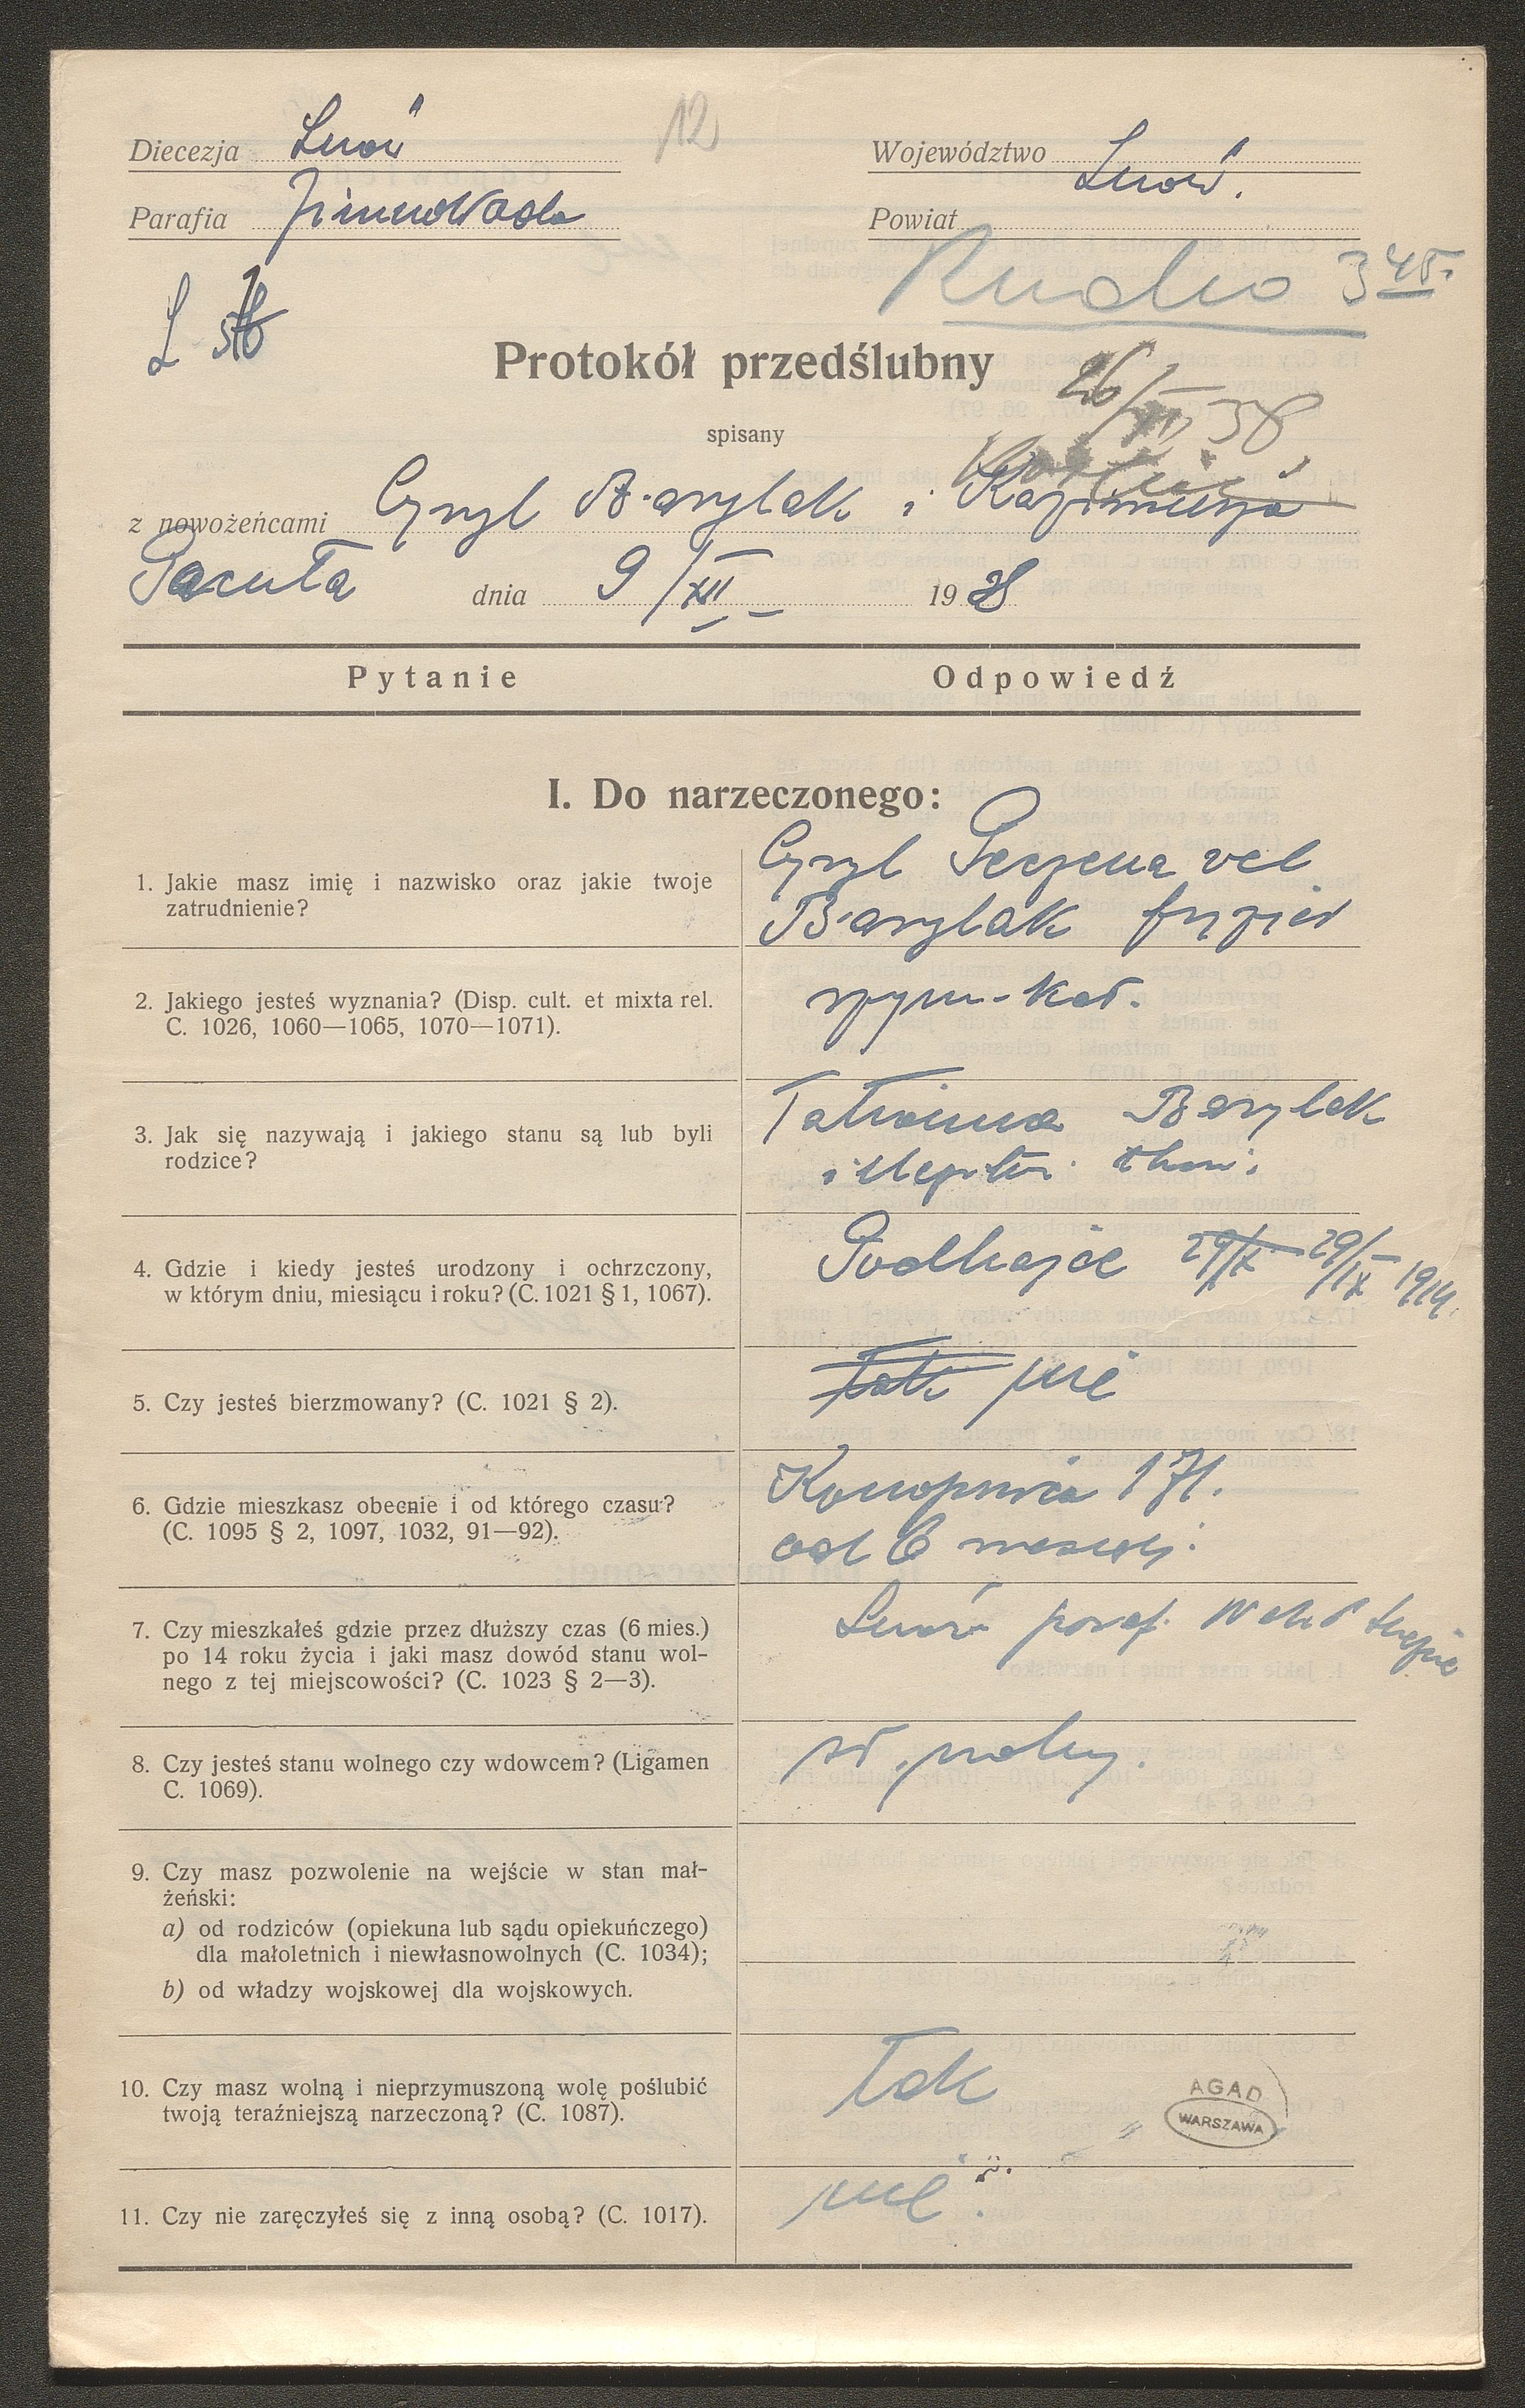 12
Diecezja Lwów
Województwo Lwów.
Parafia Zimnawoda
Powiat
Rudno 3 45.
L
Protokół przedślubny
26/XII 38
spisany
z nowożeńcami Cyryl Barylak i Kazimierza
Pacuła dnia 9/XII 1938
Pytanie Odpowiedź
I. Do narzeczonego:
1. Jakie masz imię i nazwisko oraz jakie twoje
zatrudnienie?
Cyryl Peczena vel
Barylak fryzjer
2. Jakiego jesteś wyznania? (Disp. cult. et mixta rel.
C. 1026, 1060—1065, 1070—1071).
rzym-kat.
3. Jak się nazywają i jakiego stanu są lub byli
rodzice?
Barylak
i
4. Gdzie i kiedy jesteś urodzony i ochrzczony,
w którym dniu, miesiącu i roku? (C. 1021 § 1, 1067).
Podhajce 29/X 29/IX 1914.
5. Czy jesteś bierzmowany? (C. 1021 § 2).
tak nie
6. Gdzie mieszkasz obecnie i od którego czasu?
(C. 1095 § 2, 1097, 1032, 91—92).
Konopnica 171.
od 6
7. Czy mieszkałeś gdzie przez dłuższy czas (6 mies.)
po 14 roku życia i jaki masz dowód stanu wol-
nego z tej miejscowości? (C. 1023 § 2—3).
Lwów paraf.
8. Czy jesteś stanu wolnego czy wdowcem? (Ligamen
C. 1069).
st. wolny.
9. Czy masz pozwolenie na wejście w stan mał-
żeński:
a) od rodziców (opiekuna lub sądu opiekuńczego)
dla małoletnich i niewłasnowolnych (C. 1034);
b) od władzy wojskowej dla wojskowych.
10. Czy masz wolną i nieprzymuszoną wolę poślubić
twoją teraźniejszą narzeczoną? (C. 1087).
Tak
AGAD
WARSZAWA
11. Czy nie zaręczyłeś się z inną osobą? (C. 1017).
nie.